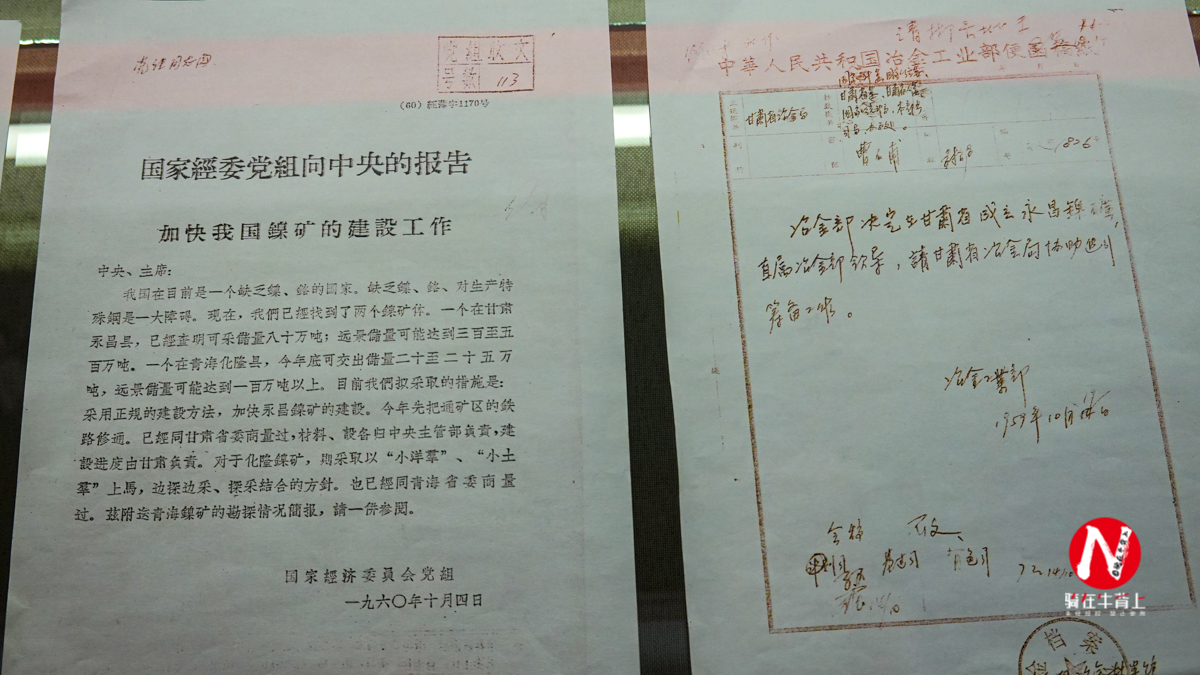 党組收文
号数 113
(60)經薄字1170号
国家經委党組向中央的报告
加快我国鎳矿的建設工作
中央、主席：
我国在目前是一个缺乏鎳、鉻的国家。缺乏鎳、鉻、对生产特
殊鋼是一大障碍。现在，我們已經找到了两个鎳矿体。一个在甘肃
永昌县，已經查明可采儲量八十万吨；远景儲量可能达到三百至五
百万吨。一个在青海化隆县，今年底可交出儲量二十至二十五万
吨，远景儲量可能达到一百万吨以上。目前我們拟采取的措施是：
采用正规的建設方法，加快永昌鎳矿的建設。今年先把通矿区的鉄
路修通。已經同甘肃省委商量过，材料、設备归中央主管部負責，建
設进度由甘肃負責。对于化隆鎳矿，則采取以“小洋羣”、“小土
羣”上馬，边探边采、探采結合的方針。也已經同青海省委商量
过。茲附送青海鎳矿的勘探情况簡报，請一併参閱。
国家經济委員会党組
一九六〇年十月四日
中華人民共和国冶金工业部便函
甘肃省冶金局
冶金部决定在甘肃省成立永昌鎳矿，
直属冶金部领导，請甘肃省冶金局协助进行
筹备工作。
冶金工業部
1959年10月
档案
N
骑在牛背上